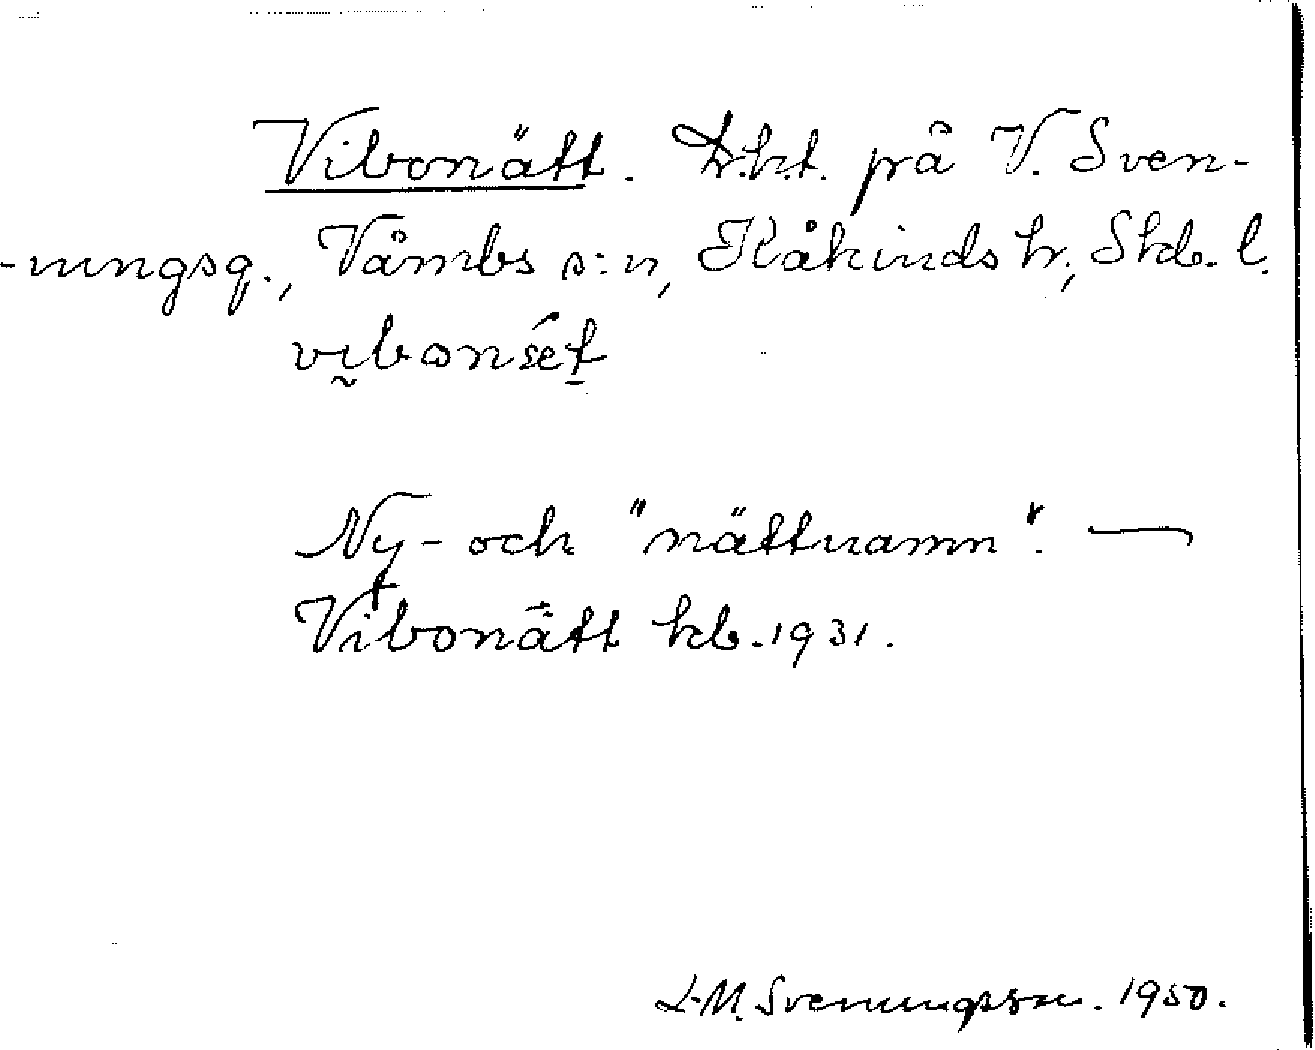 Vibonätt. D.h.t. på V. Sven-
-ningsg., Våmbs s:n, Kåkinds hr, Skb. l.
Ny- och "nättnamn". —
Vibonätt kb. 1931.
L-M. Svenungsson. 1950.